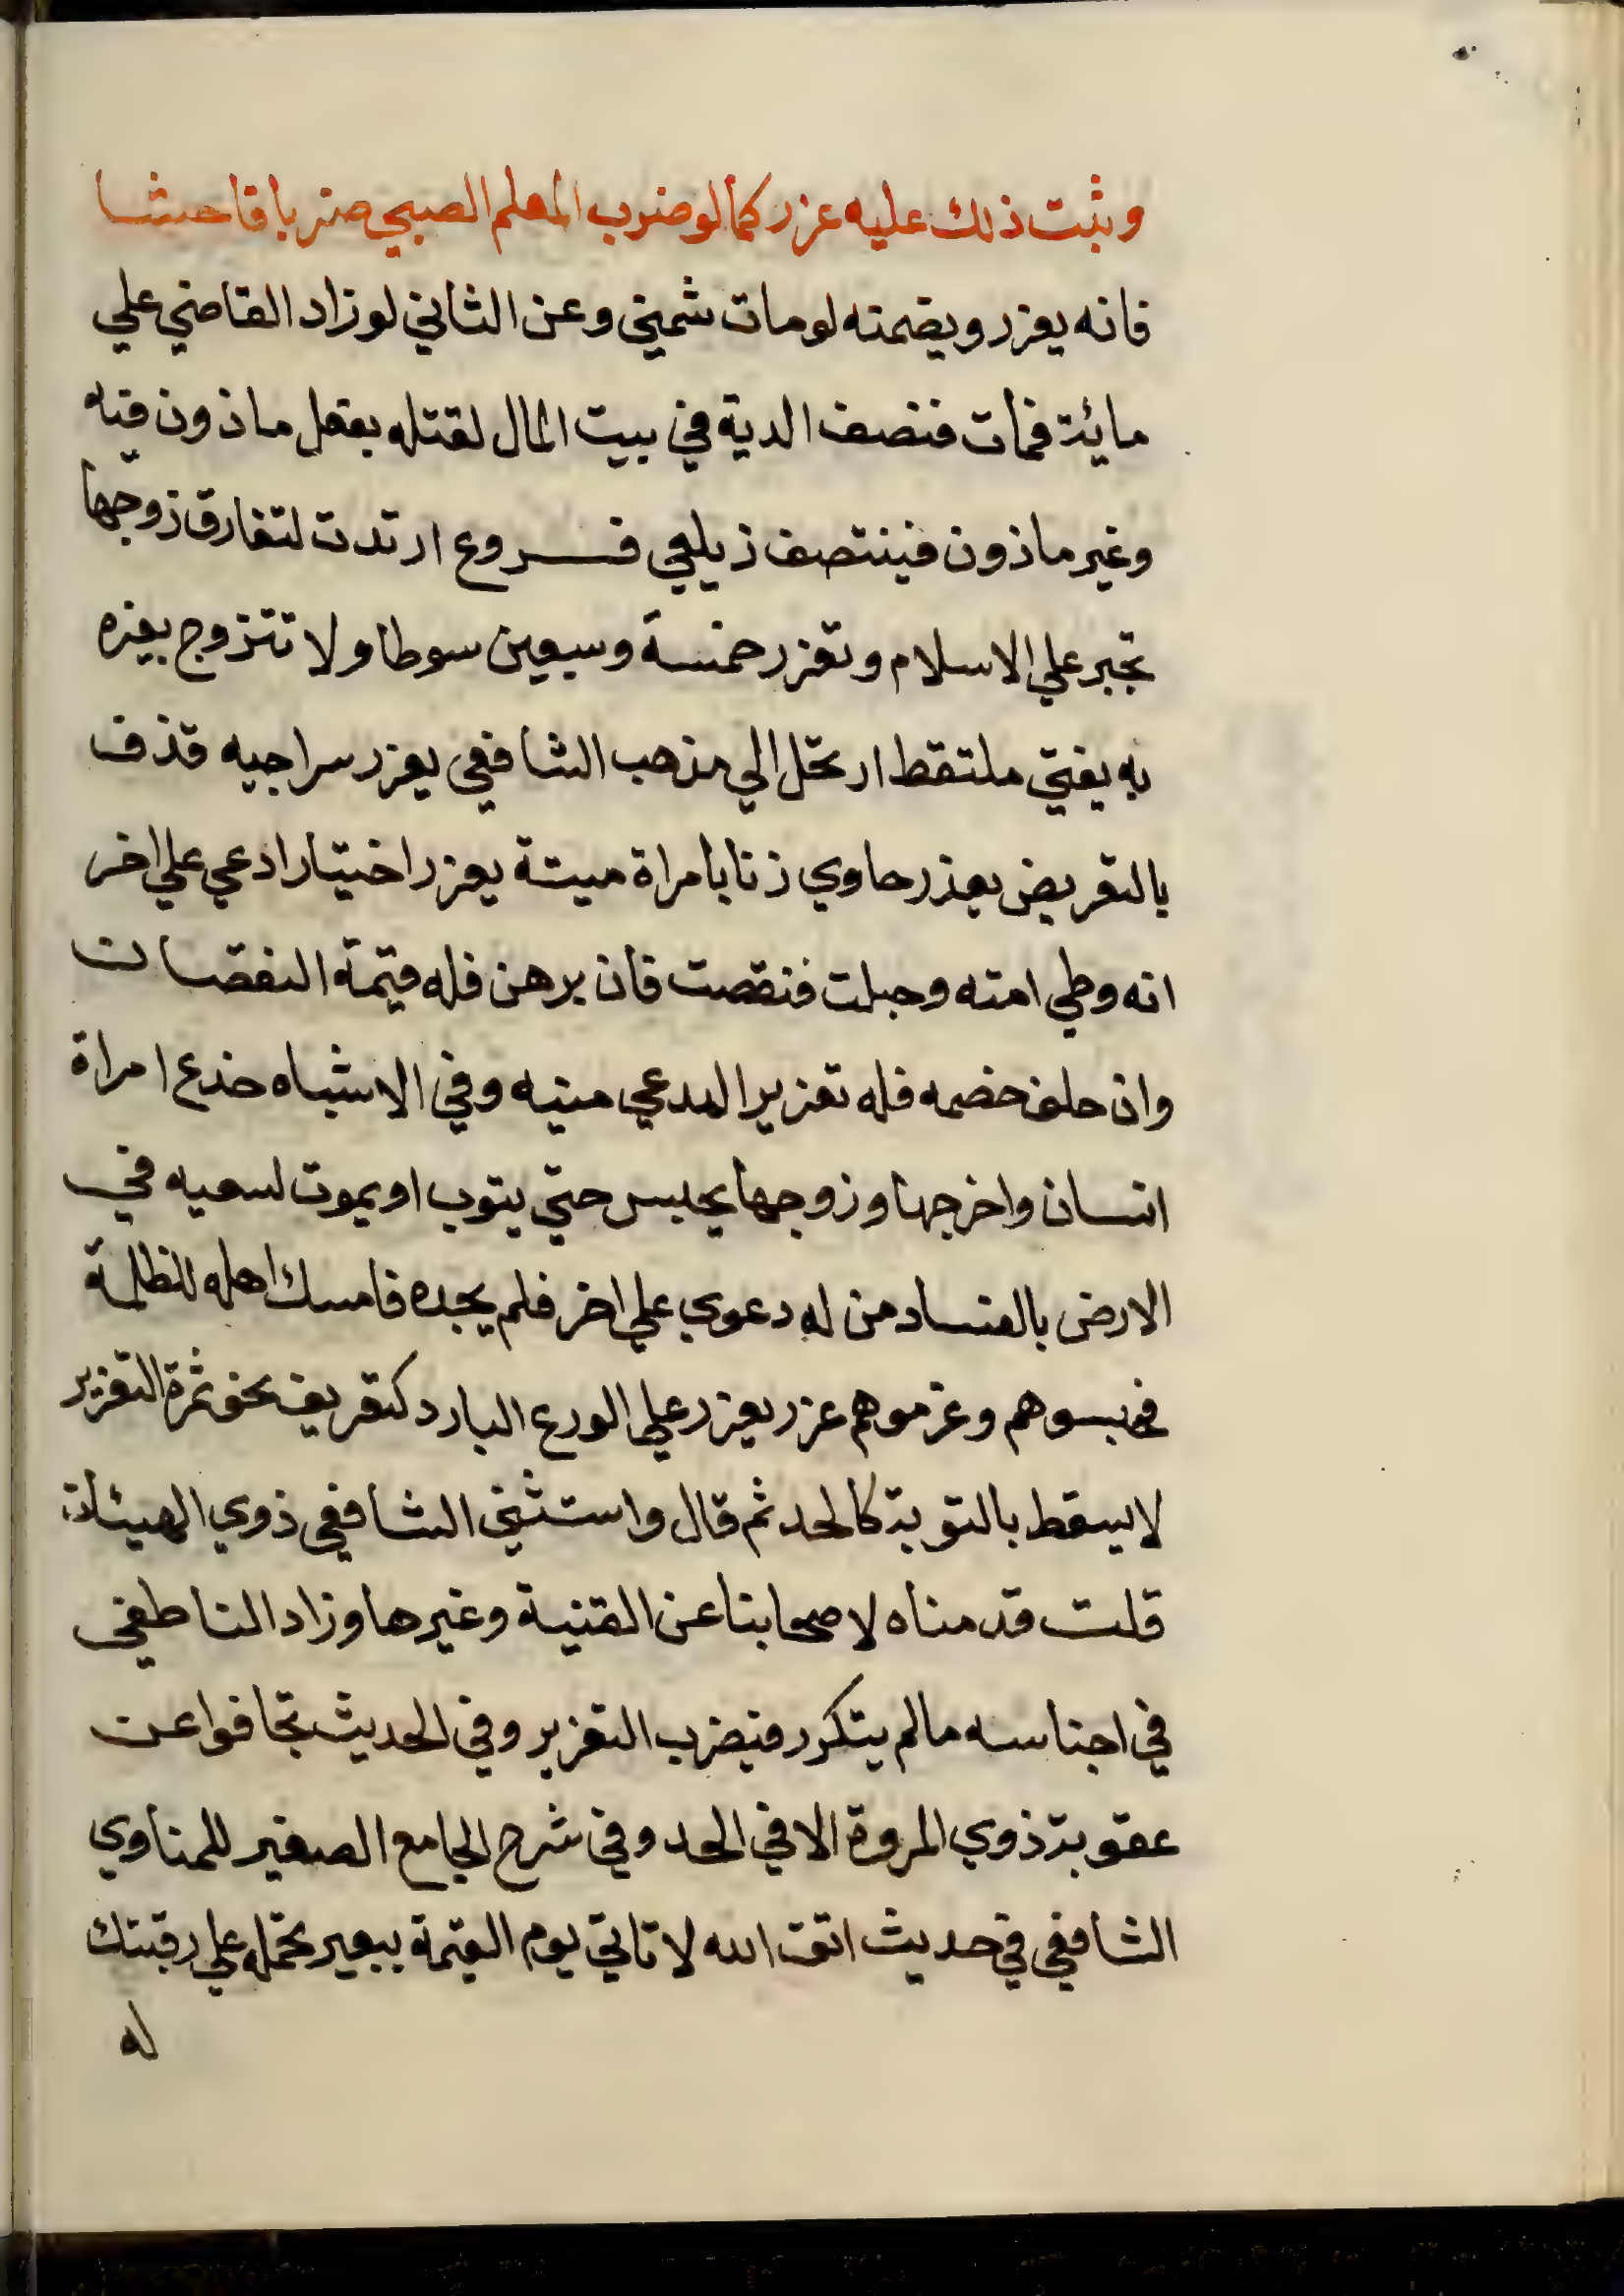 وثبت ذلك عليه عزر كما لو ضرب المعلم الصبي ضربا فاحشا
فانه يعزر ويضمنه لو مات شمني وعن الثاني لو زاد القاضي علي
مائة فمات فنصف الدية في بيت المال لقتله بفعل ماذون فيه
وغير ماذون فينتصف زيلعي فروع ارتدت لتفارق زوجها
تجبر علي الاسلام وتعزر خمسة وسبعين سوطا ولا تتزوج بغيره
به يفتي ملتقط ارتحل الي مذهب الشافعي يعزر سراجيه قذف
بالتعريض يعذر حاوي زنا بامراة ميتة يعزر اختيار ادعي علي اخر
انه وطي امته وحبلت فنقصت فان برهن فله قيمة النقصان
وان حلف خصمه فله تعزير المدعي منيه وفي الاشباه خدع امراة
انسان واخرجها وزوجها يحبس حتي يتوب او يموت لسعيه في
الارض بالفساد من له دعوي علي اخر فلم يجده فامسك اهله للظلمة
فحبسوهم وغرموهم عزر يعزر علي الورع البارد كتعريف نحو ثمرة التعزير
لا يسقط بالتوبة كالحد ثم قال واستثني الشافعي ذوي الهيئات
قلت قدمناه لاصحابنا عن القنية وغيرها وزاد الناطفي
في اجناسه مالم يتكرر فيضرب التعزير وفي الحديث تجافوا عن
عقوبة ذوي المروة الا في الحد وفي شرح الجامع الصغير للمناوي
الشافعي في حديث اتق الله لا تاتي يوم القيمة ببعير تحمله علي رقبتك
له